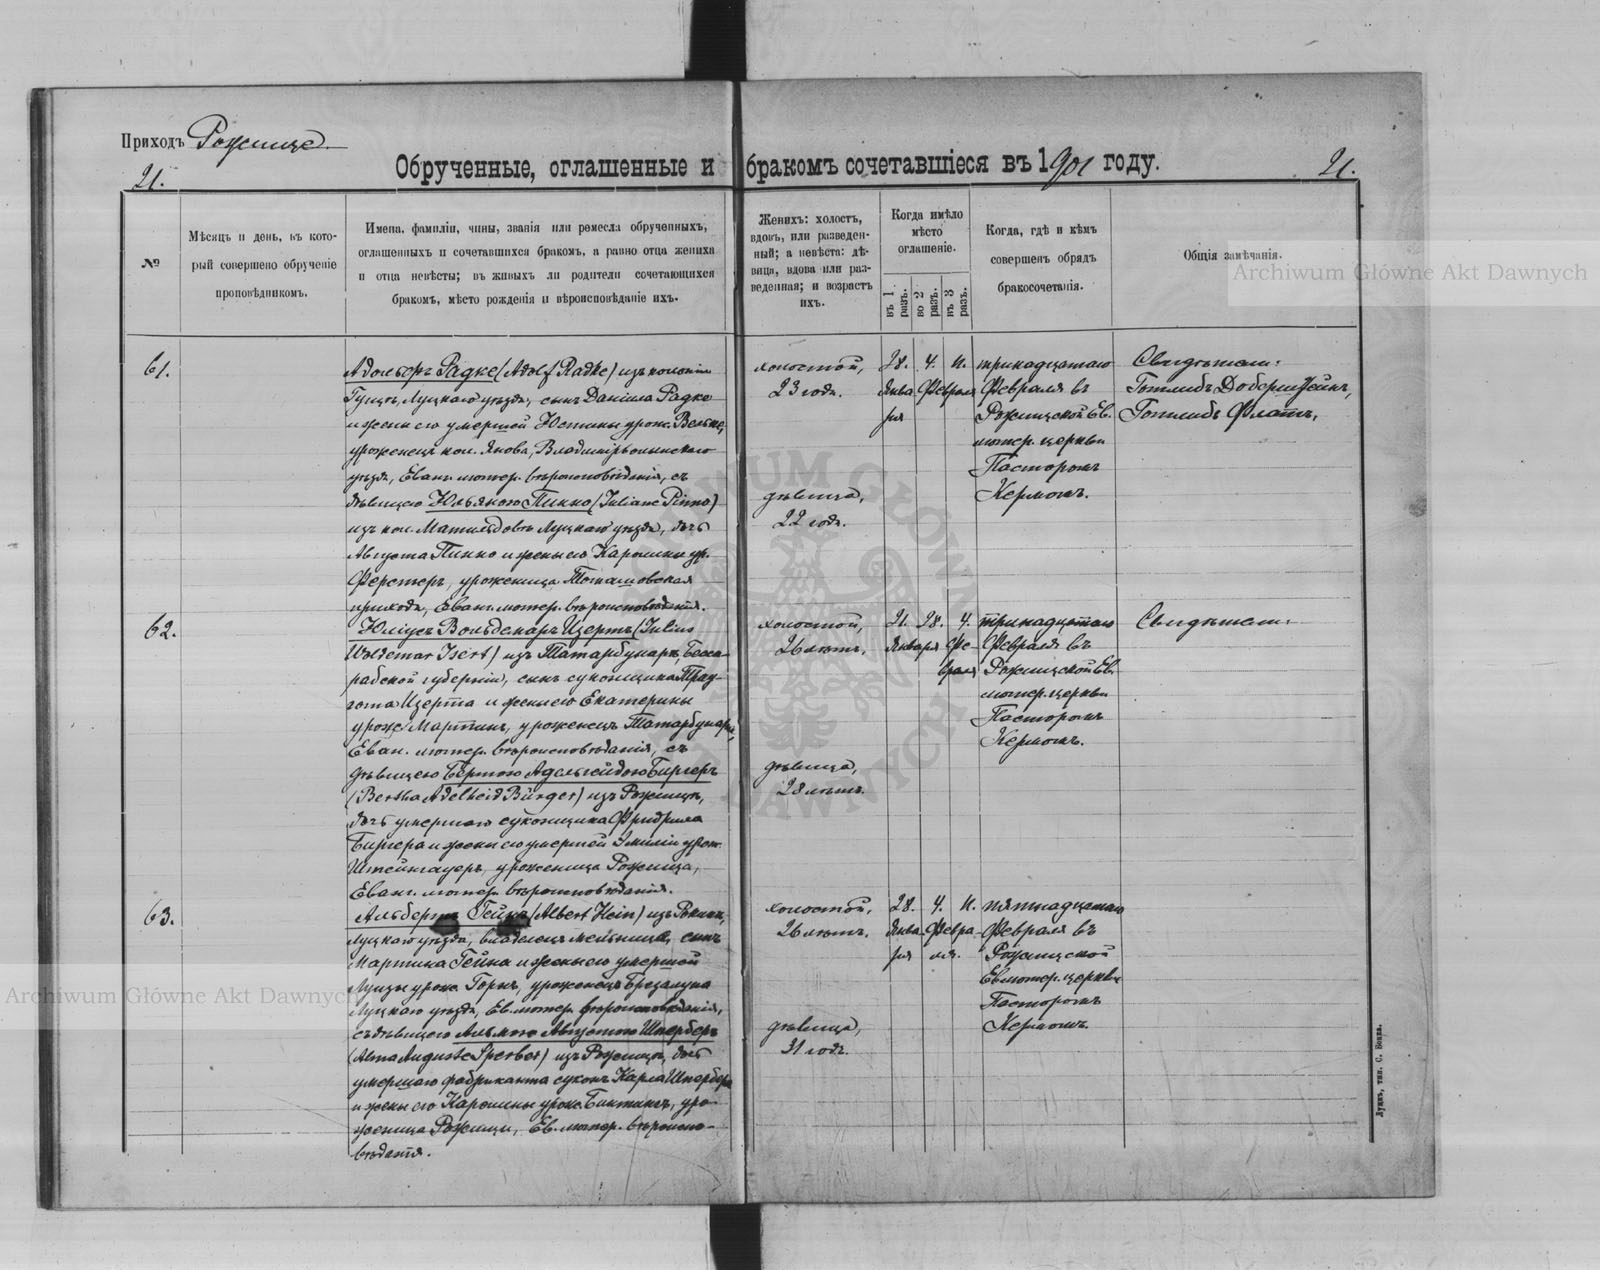 Приходъ Рожище.
21.
Обрученные, оглашенные и бракомъ сочетавшіеся въ 1901 году.
21.
№
Мѣсяцъ и день, въ кото-
рый совершено обрученіе
проповѣдникомъ.
Имена, фамиліи, чины, званія или ремесла обрученныхъ,
оглашенныхъ и сочетавшихся бракомъ, а равно отца жениха
и отца невѣсты; въ живыхъ ли родители сочетающихся
бракомъ, мѣсто рожденія и вѣроисповѣданіе ихъ.
Женихъ: холостъ,
вдовъ, или разведен-
ный; а невѣста: дѣ-
вица, вдова или раз-
веденная; и возрастъ
ихъ.
Когда имѣло
мѣсто
оглашеніе.
въ 1 разъ.
во 2 разъ.
въ 3 разъ.
Когда, гдѣ и кѣмъ
совершенъ обрядъ
бракосочетанія.
Общія замѣчанія.
Archiwum Główne Akt Dawnych
61.
Адольфъ Радке (Adolf Radke) изъ колоніи
Луцкаго уѣзда, сынъ Даніила Радке
и жены его умершей Юстины урож. Вельке,
уроженецъ кол. Янова, Владимірволынскаго
уѣзда, Еванг. лютер. вѣроисповѣданія, съ
дѣвицею Юльяною Пинно (Juliane Pinno)
изъ кол. Матильдовъ Луцкаго уѣзда, дочь
Августа Пинно и жены его Каролины ур.
Ферстеръ, уроженица Томашовская
прихода, Еванг. лютер. вѣроисповѣданія.
холостой,
23 года.
дѣвица,
22 года.
28. 4. 11.
Янва Февраля
ря
тринадцатаго
Февраля въ
Рожищской Ев.
лютер. церкви
Пасторомъ
Кермомъ.
Свидѣтели:
Готлибъ
Готлибъ Флатъ,
62.
Юліусъ Вольдемаръ Изертъ (Julius
Woldemar Isert) изъ Татарбунаръ, Бесса-
рабской губерніи, сынъ суконщика Трау-
гота Изерта и жены его Екатерины
урож. Мартинъ, уроженецъ Татарбунаръ,
Еван. лютер. вѣроисповѣданія, съ
дѣвицею Бертою Адельгейдою Биргеръ
(Bertha Adelheid Bürger) изъ Рожищъ,
дочь умершаго суконщика Фридриха
Биргера и жены его умершей Эмиліи урож.
уроженица Рожища,
Еванг. лютер. вѣроисповѣданія.
холостой,
26 лѣтъ.
дѣвица,
28 лѣтъ.
21. 28. 4.
Января Фе-
враля
тринадцатаго
Февраля въ
Рожищской Ев.
лютер. церкви
Пасторомъ
Кермомъ.
Свидѣтели:
63.
Альбертъ Гейнъ (Albert Hein) изъ
Луцкаго уѣзда, владелецъ мельницы, сынъ
Мартина Гейна и жены его умершей
Луизы урож. Горнъ, уроженецъ
Луцкаго уѣзда, Ев. лютер. вѣроисповѣданія,
съ дѣвицею Альмою Августою Шперберъ
(Alma Auguste Sperber) изъ Рожищъ, дочь
умершаго фабриканта суконъ Карла Шпербера
и жены его Каролины урож. уро-
женица Рожищи, Ев. лютер. вѣроиспо-
вѣданія.
холостой,
26 лѣтъ.
дѣвица,
31 годъ.
28. 4. 11.
Янва Февра
ря ля.
пятнадцатаго
Февраля въ
Рожищской
Ев. лютер. церкви
Пасторомъ
Кермомъ.
Archiwum Główne Akt Dawnych
Луцкъ, тип. С. Бокла.